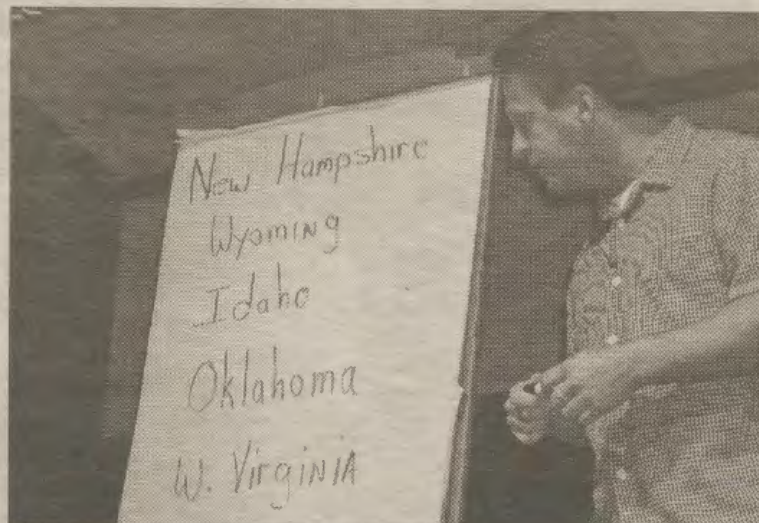 New Hampshire
Wyoming
Idaho
Oklahoma
W. Virginia